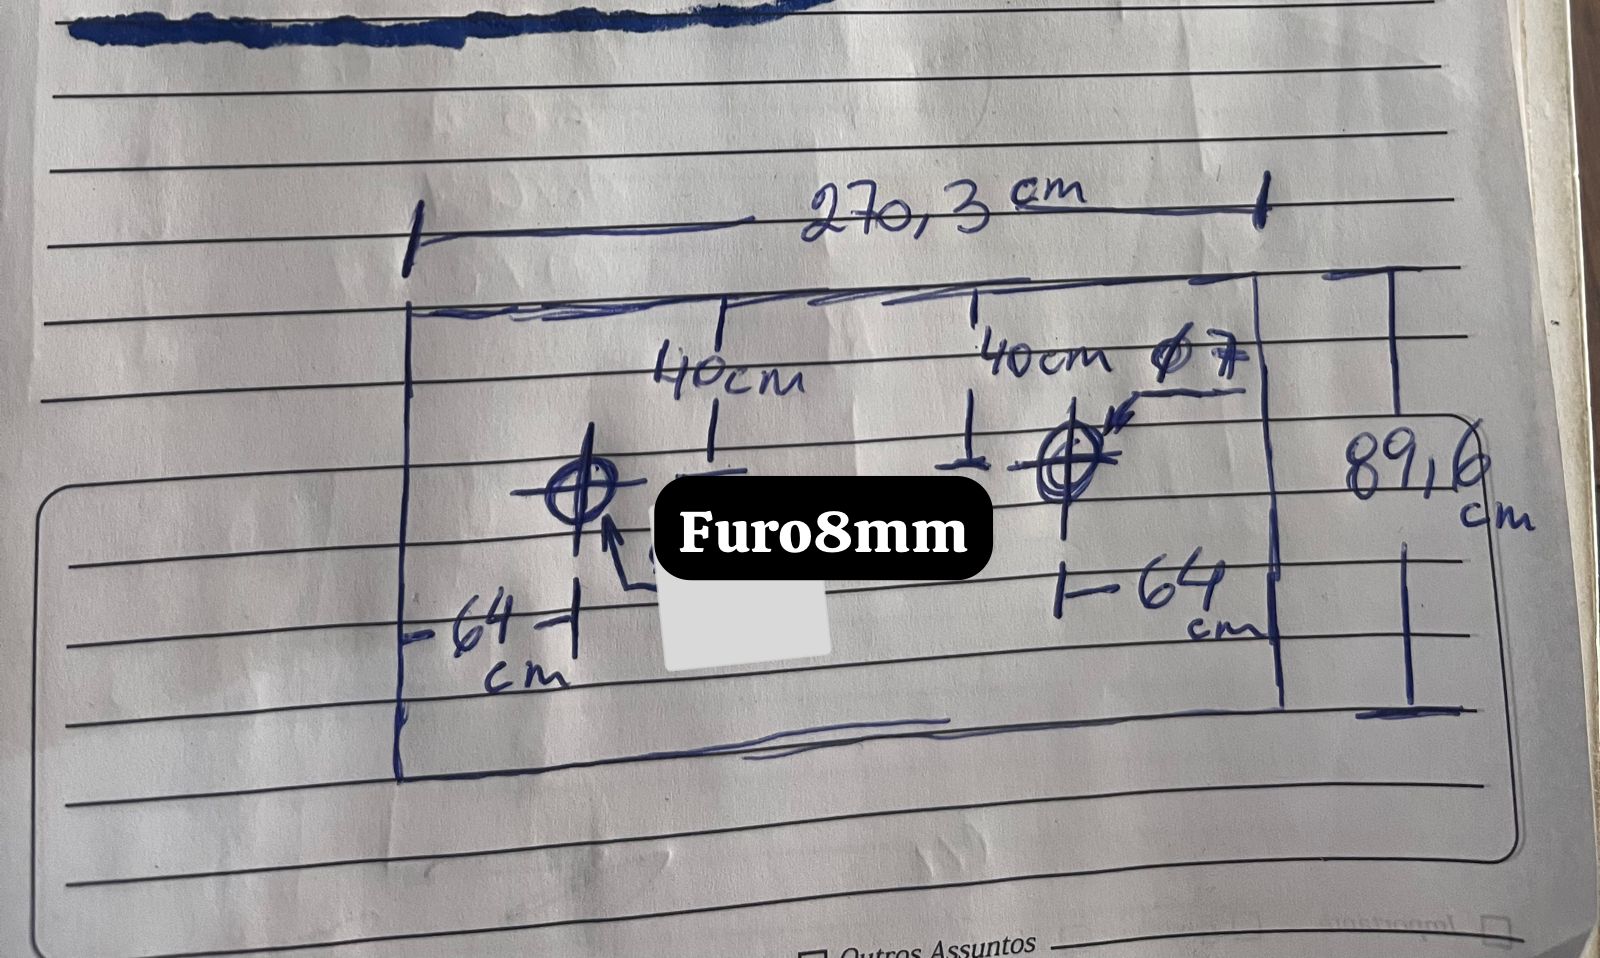 270,3 cm
40cm
40cm
Ø7
89,6
cm
Furo8mm
64
cm
64
cm
Outros Assuntos
Importante